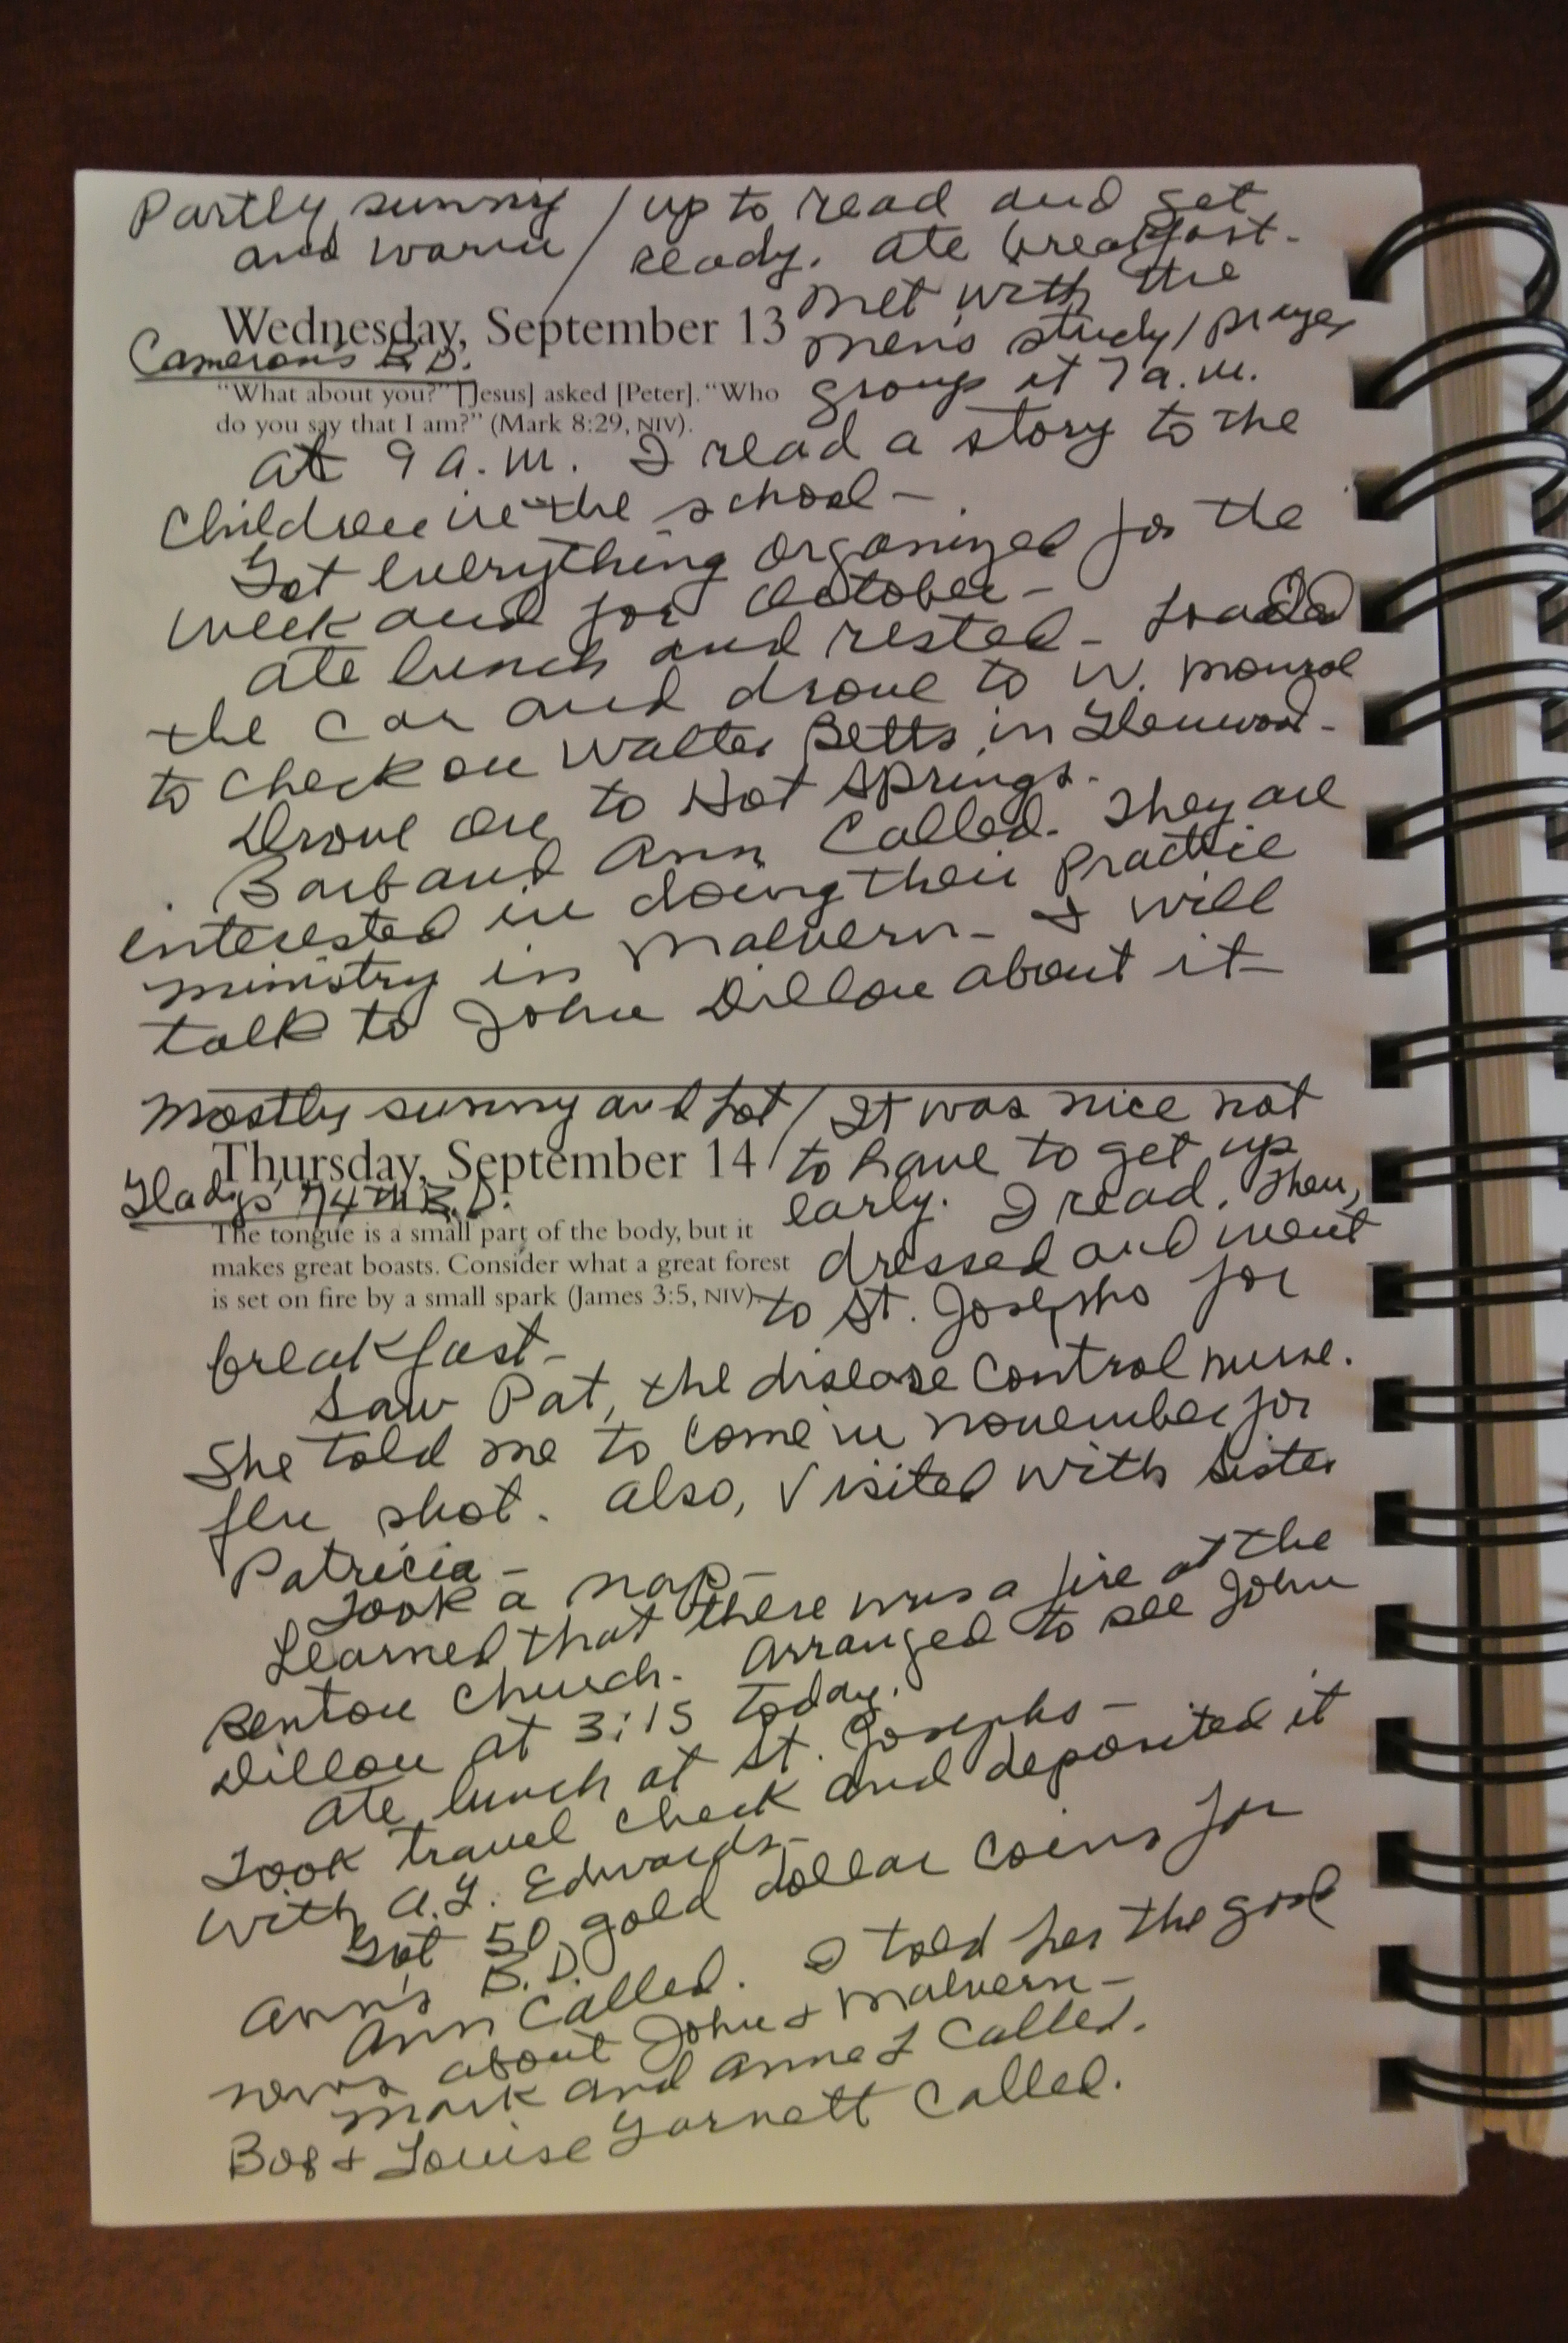 Partly sunny / up to read and get
and warm / ready. Ate breakfast.
Wednesday, September 13 Met with the
Cameron's B.D. men's study/prayer
"What about you?" [Jesus] asked [Peter]. "Who group at 7 a.m.
do you say that I am?" (Mark 8:29, NIV).
At 9 a.m. I read a story to the
children in the school –
Got everything organized for the
week and for October –
Ate lunch and rested – Loaded
the car and drove to W. Monroe
to check on Walter Betts in Glenwood –
Drove on to Hot Springs.
Barb and Ann called. They are
interested in doing their practice
ministry in Malvern – I will
talk to John Dillon about it –
Mostly sunny and hot / It was nice not
Thursday, September 14 / to have to get up
Gladys' 74th B.D. early. I read. Then,
The tongue is a small part of the body, but it
makes great boasts. Consider what a great forest dressed and went
is set on fire by a small spark (James 3:5, NIV). to St. Josephs for
breakfast –
Saw Pat, the disease control nurse.
She told me to come in November for
flu shot. Also, visited with Sister
Patricia –
Took a nap –
Learned that there was a fire at the
Benton Church. Arranged to see John
Dillon at 3:15 today.
Ate lunch at St. Josephs –
Took travel check and deposited it
with A.G. Edwards –
Got 50 gold dollar coins for
Ann's B.D.
Ann called. I told her the good
news about John & Malvern –
Mark and Anne L called.
Bob & Louise Garnett called.